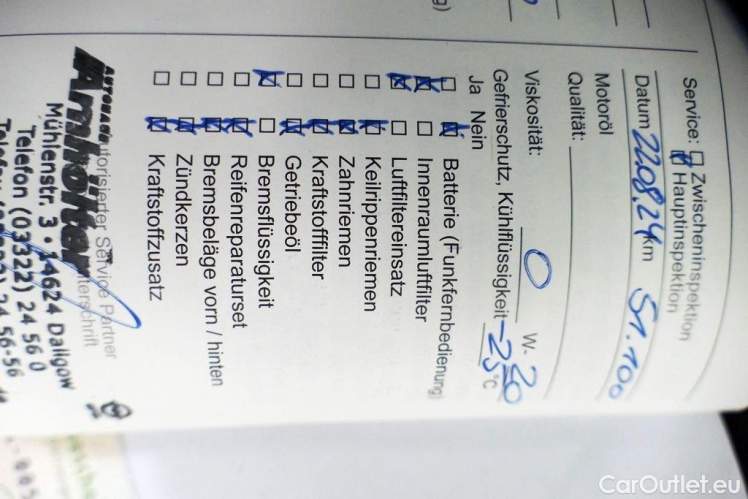 Service: Zwischeninspektion
Hauptinspektion
Datum 22.08.24 km 51.100
Motoröl
Qualität:
Viskosität: 0 W- 20
Gefrierschutz, Kühlflüssigkeit -25 °C
Ja Nein
Batterie (Funkfernbedienung)
Innenraumluftfilter
Luftfiltereinsatz
Keilrippenriemen
Zahnriemen
Kraftstofffilter
Getriebeöl
Bremsflüssigkeit
Reifenreparaturset
Bremsbeläge vorn / hinten
Zündkerzen
Kraftstoffzusatz
Autorisierter Service Partner
Arnholter
Mühlenstr. 3 • 14624 Dallgow
Telefon (03322) 24 56 0
24 56-56
CarOutlet.eu